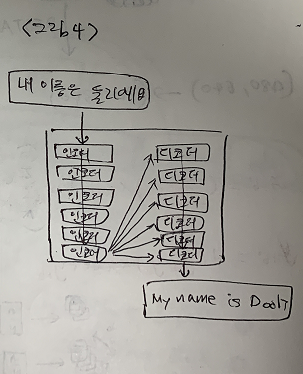 <그림4>
내 이름은 둘리예요
인코더 디코더
인코더 디코더
인코더 디코더
인코더 디코더
인코더 디코더
인코더 디코더
My name is